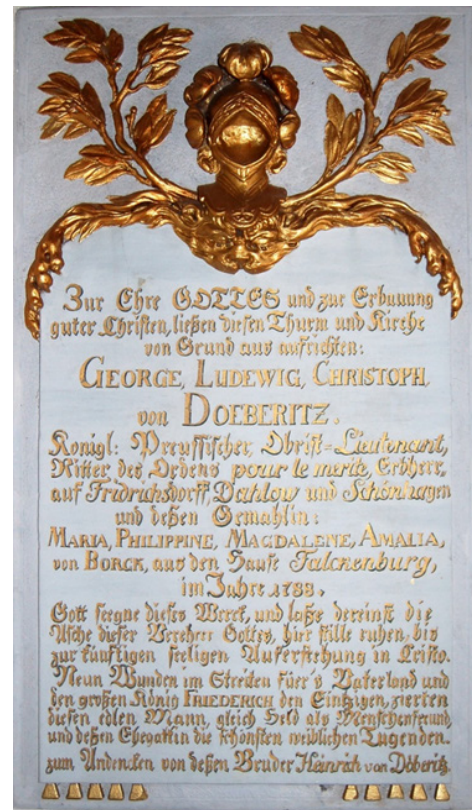 Zur Ehre GOTTES und zur Erbauung
guter Christen, ließen diesen Thurm und Kirche
von Grund aus aufrichten:
GEORGE, LUDEWIG, CHRISTOPH,
von DOEBERITZ.
Konigl: Preussischer Obrist=Lieutenant,
Ritter des Ordens pour le merite, Erbherr,
auf Fridrichsdorff, Dahlow und Schönhagen
und deßen Gemahlin:
MARIA, PHILIPPINE, MAGDALENE, AMALIA,
von BORCK, aus den Hause Falckenburg,
im Jahre 1788.
Gott seegne dieses Werck, und laße dereinst die
Asche dieser Verehrer Gottes, hier stille ruhen, bis
zur künftigen seeligen Auferstehung in Cristo.
Neun Wunden im Streiten füer's Vaterland und
den großen König FRIEDERICH den Eintzigen, zierten
diesen edlen Mann, gleich Held als Menschenfreund,
und deßen Ehegattin die schönsten weiblichen Tugenden.
zum Andencken von deßen Bruder Heinrich von Döberitz.